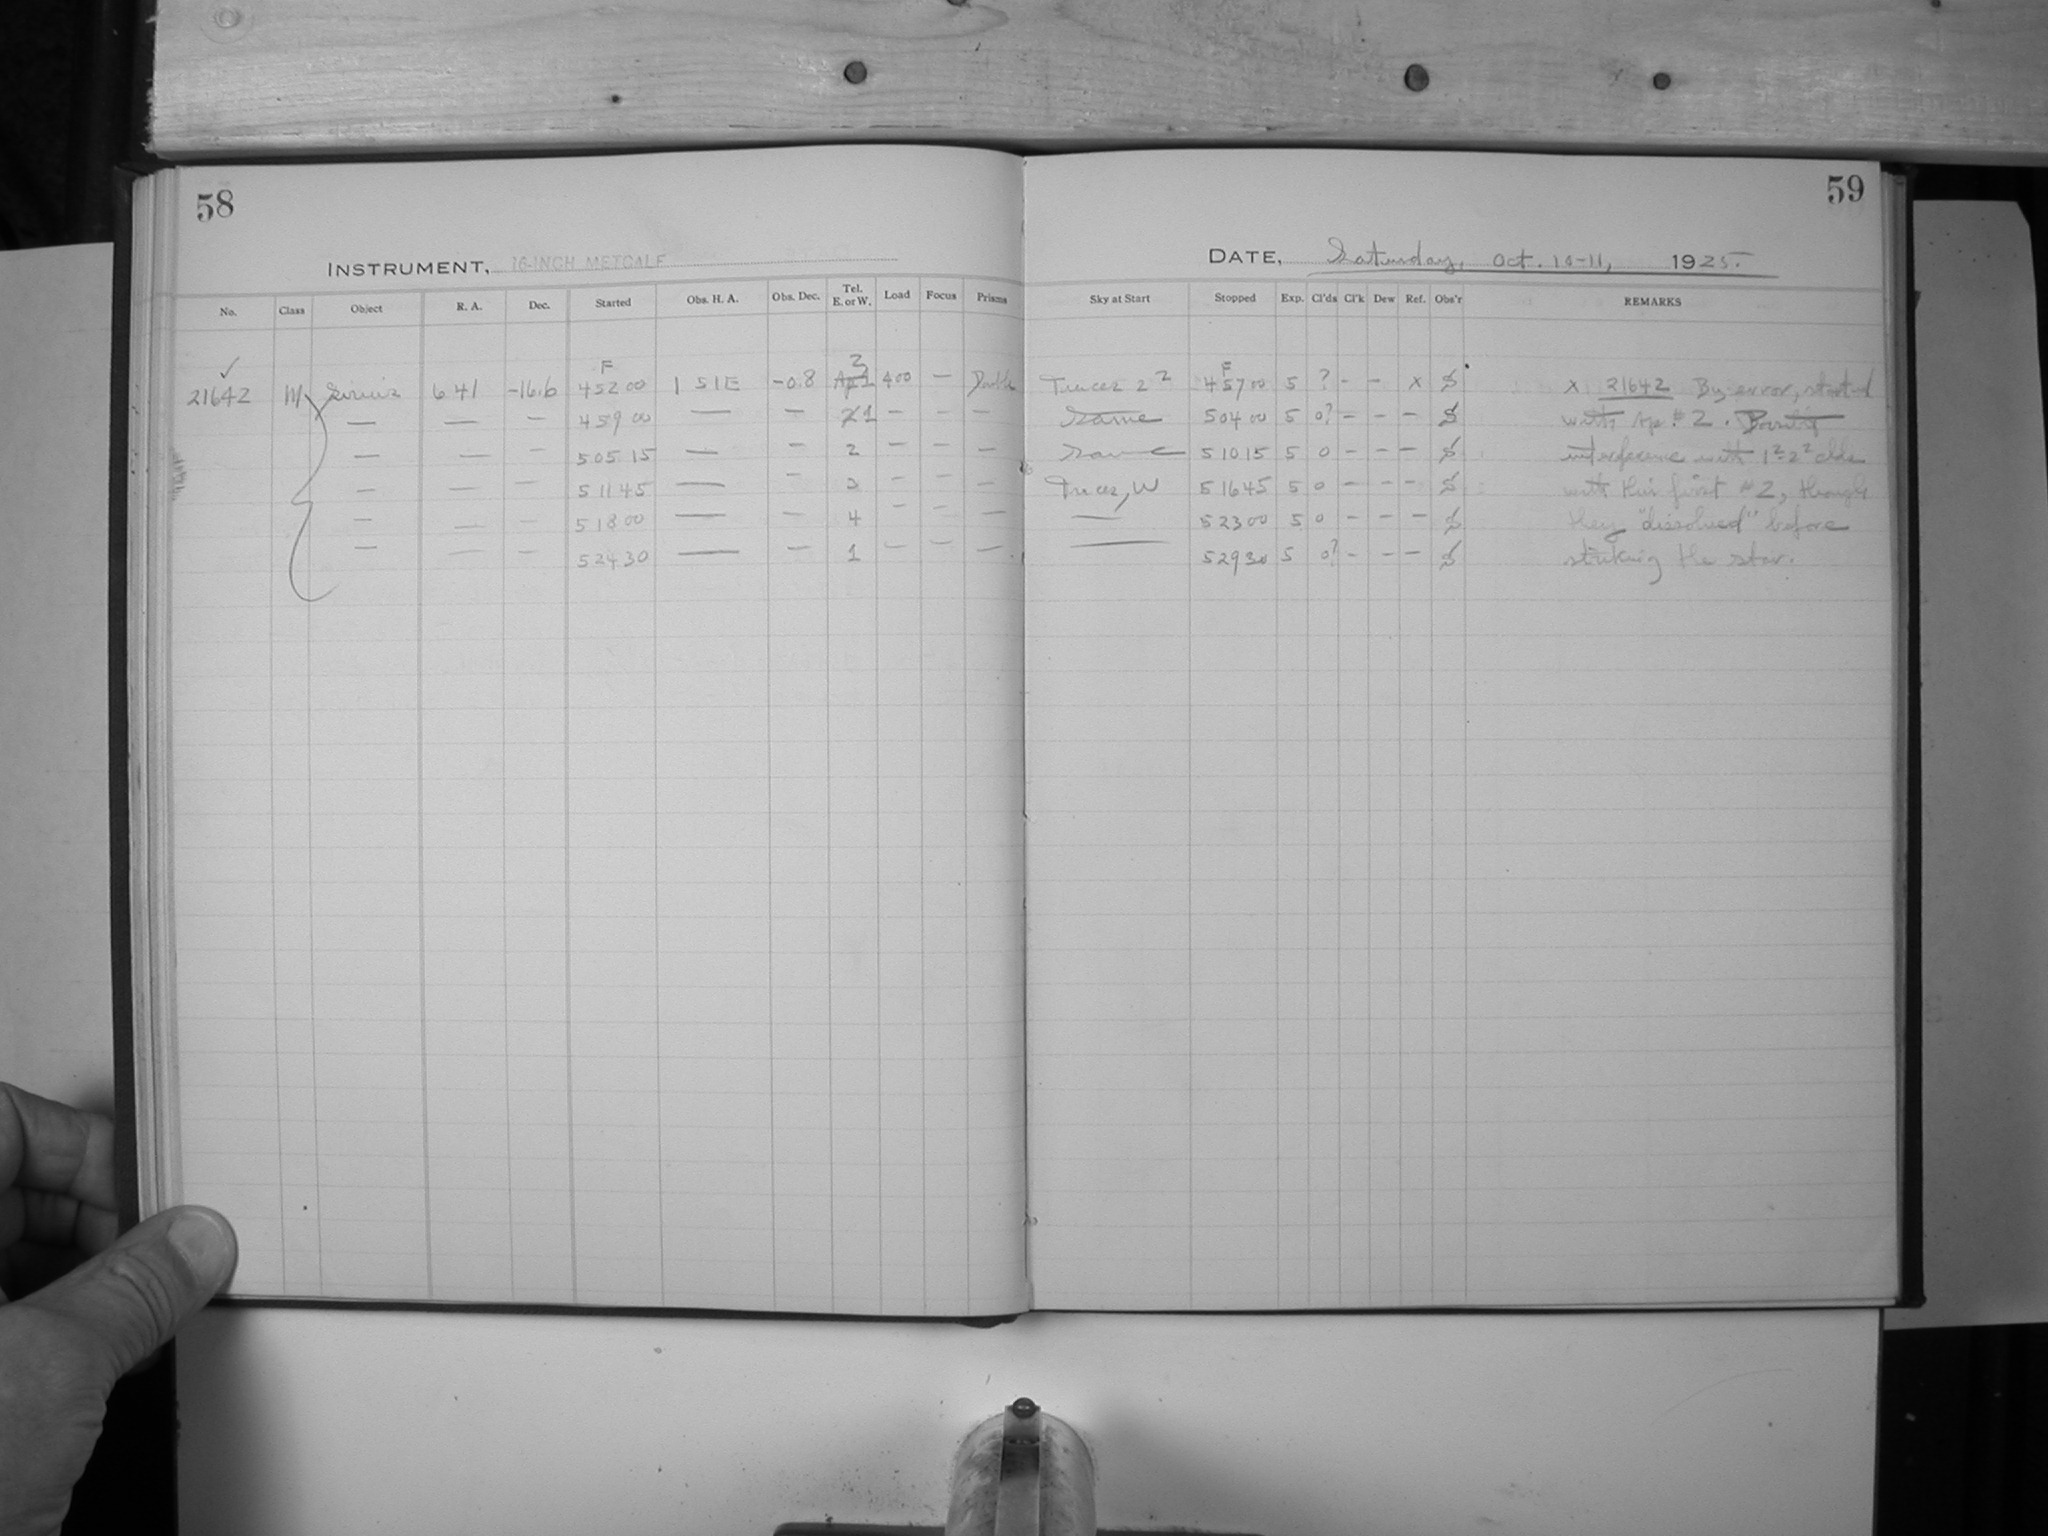 58
59
INSTRUMENT, 16-INCH METCALF
DATE, Saturday, Oct. 10-11, 1925.
No. Class Object R. A. Dec. Started Obs. H. A. Obs. Dec. Tel. E. or W. Load Focus Prisms Sky at Start Stopped Exp. Cl'ds Cl'k Dew Ref. Obs'r REMARKS
✓ F F
21642 M Sirius 6 41 -16.6 4 52 00 1 51 E -0.8 2 400 — Double Traces 2 2 4 57 00 5 ? - - x $ x 21642 By error, started
— — — 4 59 00 — — 1 — — — Same 5 04 00 5 0? — — — $ with Ap. #2.
— — — 5 05 15 — — 2 — — — Same 5 10 15 5 0 — — — $ interference with 1²-2² clds
— — — 5 11 45 — — 3 — — — Traces, W 5 16 45 5 0 — — — $ with this first #2, though
— — — 5 18 00 — — 4 — — — — 5 23 00 5 0 — — — $ they "dissolved" before
— — — 5 24 30 — — 1 — — — — 5 29 30 5 0? — — — $ striking the star.